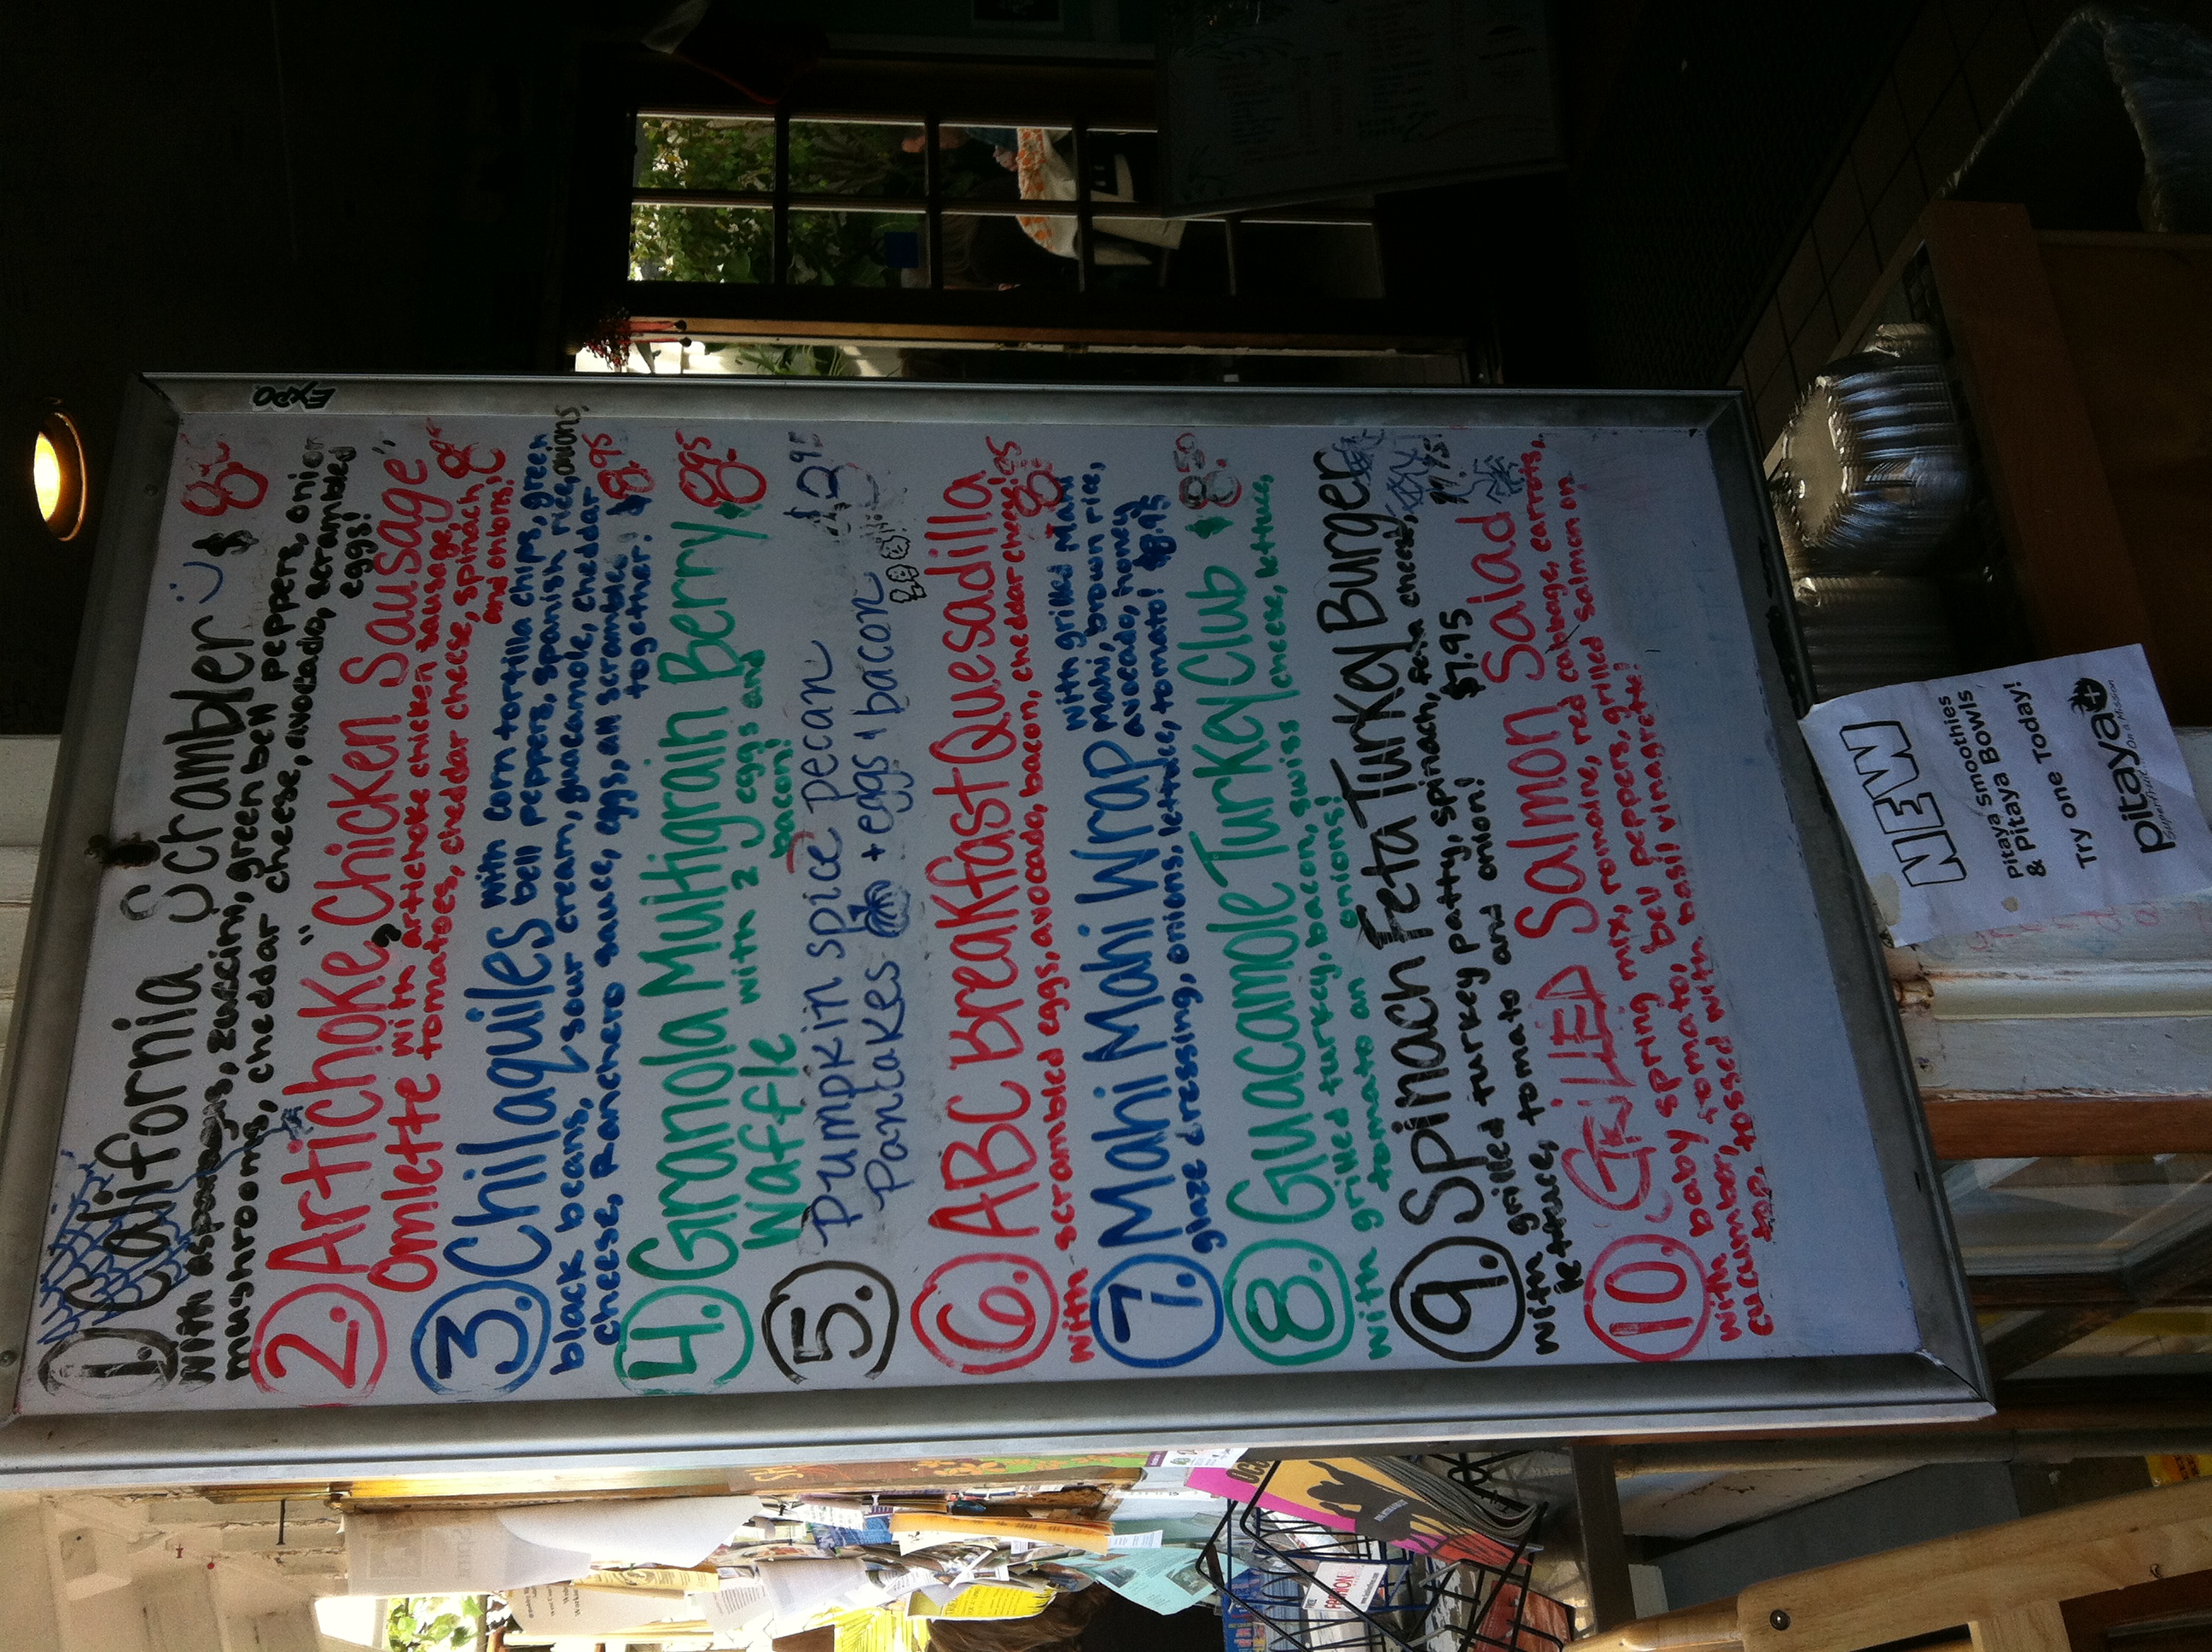 EXPO
1. California Scrambler $ 8
with asparagus, zuccini, green bell peppers, onion
mushrooms, cheddar cheese, avocado, scrambled
eggs!
2. "Artichoke, Chicken Sausage"
Omlette with artichoke chicken sausage,
tomatoes, cheddar cheese, spinach
and onions!
3. Chilaquiles with corn tortilla chips, green
bell peppers, spanish rice, onions,
black beans, sour cream, guacamole, cheddar
cheese, Ranchero sauce, eggs, all scrambled
together! $8.95
4. Granola Multigrain Berry $8.95
Waffle with 2 eggs and
bacon!
5. Pumpkin spice pecan
Pancakes + eggs & bacon
6. ABC Breakfast Quesadilla
with scrambled eggs, avocado, bacon, cheddar cheese!
7. Mahi Mahi Wrap with grilled Mahi
Mahi, brown rice,
avocado, honey
glaze dressing, onions, lettuce, tomato! $8.95
8. Guacamole Turkey Club $8.50
with grilled turkey, bacon, swiss cheese, lettuce,
tomato an onions!
9. Spinach Feta Turkey Burger
with grilled turkey patty, spinach, feta cheese,
lettuce, tomato and onion! $7.95
10. GRILLED Salmon Salad
with baby spring mix, romaine, red cabbage, carrots,
cucumber, tomato, bell peppers, grilled salmon on
top, tossed with basil vinagrete!
NEW
Pitaya Smoothies
& Pitaya Bowls
Try one Today!
pitaya
Superfruit... On a Mission
FASHION